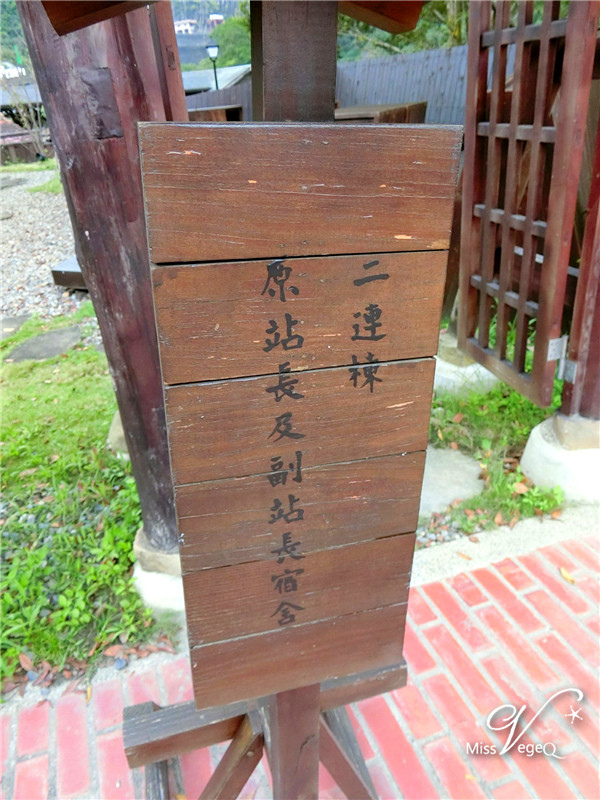 二連棟
原站長及副站長宿舍
Miss VegeQ